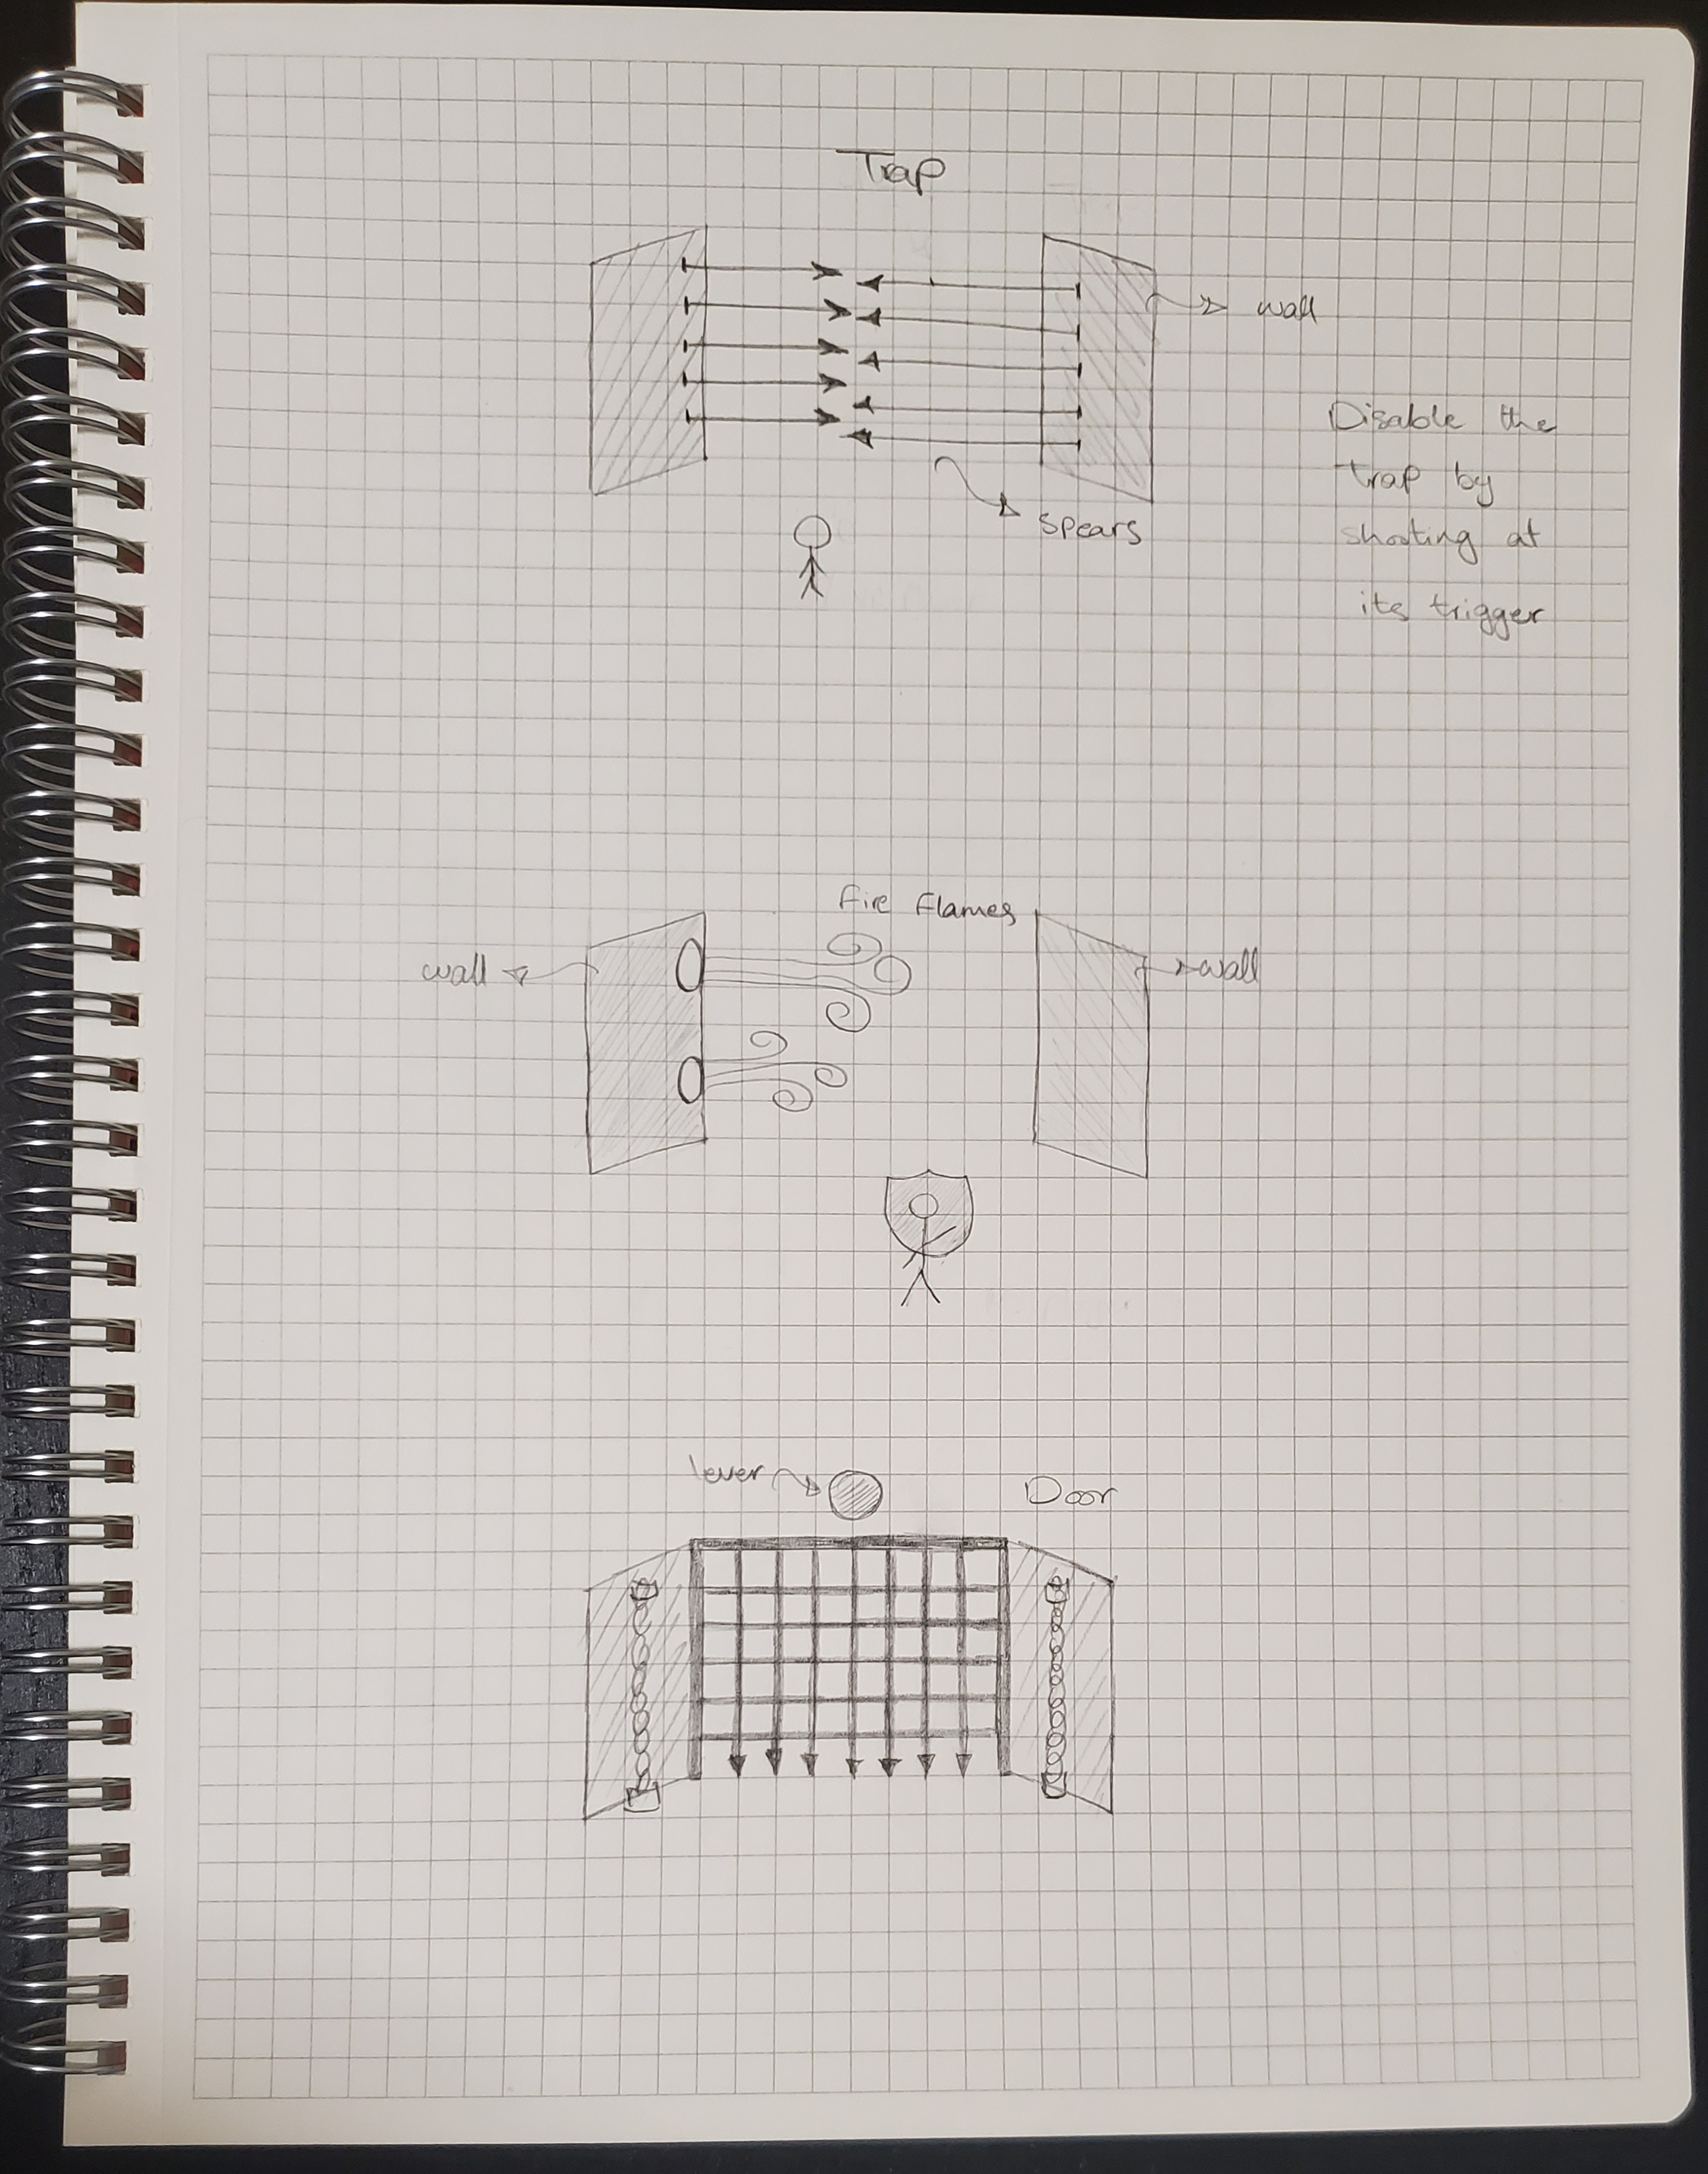 Trap
wall
Disable the
trap by
shooting at
its trigger
spears
Fire Flames
wall
wall
lever
Door